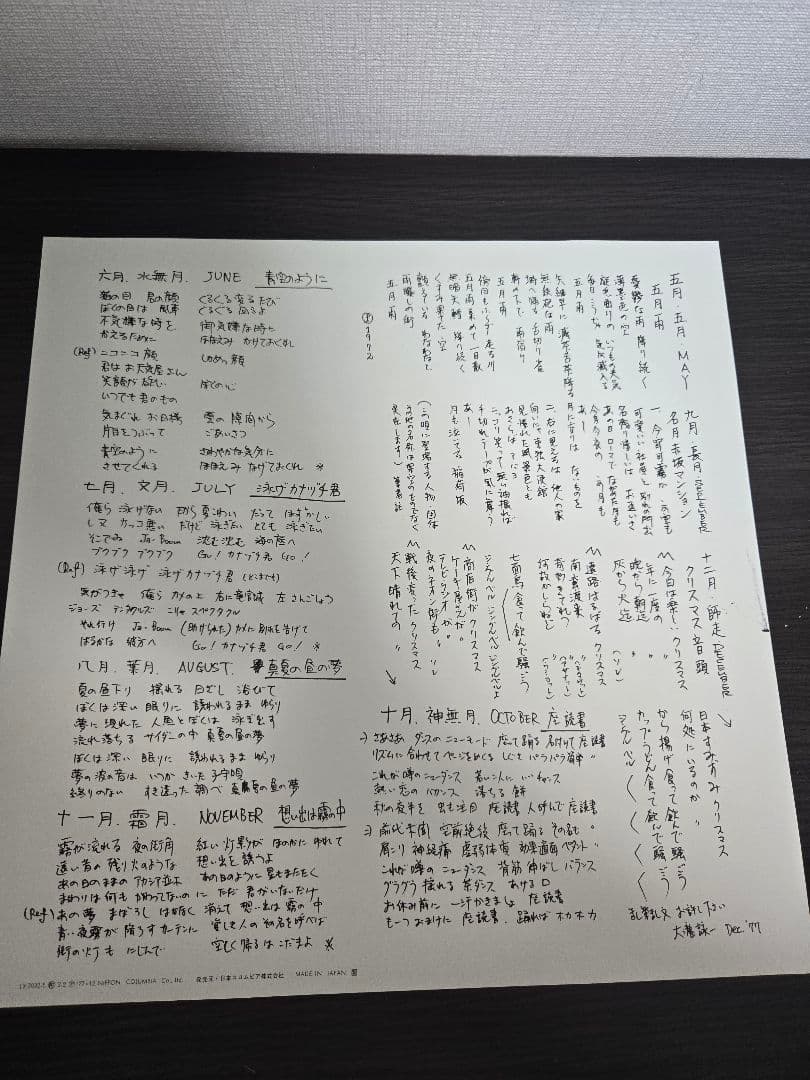 六月.水無月. JUNE 青空のように
君の顔 くるくる変るたび
ぼくの目は 風車 ぐるぐる回るよ
不気嫌な時を 御気嫌な時に
かえるために ほほえみ かけておくれ
(Ref) ニコニコ顔 しかめっ顔
君はお天気屋さん
笑顔が
いつでも 君のもの
気まぐれ お日様 雲の 隙間から
片目をつぶって ごあいさつ
青空のように さわやかな気分に
させてくれる ほほえみ なげておくれ ※
七月.文月. JULY 泳げカナヅチ君
俺ら 泳げない だって はずかしい
カッコ悪い だけど 泳ぎたい とても 泳ぎたい
そこでみ Ja-Boon 沈む沈む 海の底へ
ブクブク ブクブク Go! カナヅチ君 Go!
(Ref) 泳げ泳げ 泳げカナヅチ君
俺ら カメの上 右に竜宮城 左さんごしょう
ジョーズ テンタクルズ こりゃ スペクタクル
やれ行け Ja-Boon (助けられた) カメに別れを告げて
はるかな 彼方へ Go! カナヅチ君 Go! ※
八月.葉月. AUGUST. 真夏の昼の夢
真の昼下り 揺れる 日ざし 浴びて
ぼくは深い 眠りに 誘われるまま ゆらり
夢に 現れた 人魚とぼくは 泳ぎ出す
流れ落ちる サイダーの中 真夏の昼の夢
ぼくは深い 眠りに 誘われるまま ゆらり
夢の波の音は いつか きいた 子守唄
終りのない すき透った 調べ 真夏の昼の夢
十一月.霜月. NOVEMBER 想い出は霧の中
霧が流れる 夜の街角 紅い灯影が ほのかに ゆれて
遠い昔の 残り火のような 想い出を 誘うよ
あの日のままの アカシア並木 あの日のように 星もまたたく
まわりは何も かわってないのに ただ 君がいないだけ
(Ref) あの夢 まぼろし はかなく 消えて 想い出は 霧の中
青い夜霧が 降らすカーテンに 愛した人の名を呼べば
街の灯も にじんで 空しく帰るは こだまよ ※
五月.五月. MAY
五月雨
憂鬱な雨 降り続く
薄墨色の空
いつもの天気
毎日 うちゃ 気が滅入る
五月雨
無鉄砲な雨
場へ帰る 舌切り雀
軒の下で 雨宿り
五月雨
五月雨 集めて 一日散
無明矢鱈 降り続く
くすみ果てた 空
顫えている わななく
雨曝しの街
五月雨
1972
九月.長月. SEPTEMBER
名月赤坂マンション
一、今宵 可
可愛いい 社屋と 別れの門出
名残り惜しいは お互いさ
あの日 ローマで ながめた月も
今宵今夜の この月も
あー
月に変りは ないものを
二、右に見えるは 他人の家
向いにゃ 東独大使館
見慣れた風景 色とも
おさらば
ニッコリ笑って 無い袖振れば
千切れテープが 風に舞う
あー
月も泣いてる 稲荷坂
(この唄に登場する人物・団体
その他の名称は架空のものでなく
実在します。) 筆者註
十二月.師走 DECEMBER
クリスマス音頭
〽今日は楽し クリスマス
年に一度の 〃
晩から朝迄 〃
灰から火迄 (ソレ)
〽遠路はるばる クリスマス
南蛮渡来
七面鳥 食って飲んで騒ごう
ジングルベル ジングルベル ジングルベルよ
〽商店街が クリスマス
ケーキ屋さんが 〃
テレビ・ラジオが 〃
夜のネオン街も 〃 ソレ
〽戦後変った クリスマス
天下晴れての 〃
日本すみずみ クリスマス
何処にいるのか 〃
から揚げ食って飲んで騒ごう
カップうどん食って飲んで騒ごう
ジングルベル
十月.神無月. OCTOBER 座読書
さあさあ ダンスのニューモード 座って踊る 名付けて 座読書
リズムに合わせて ページをめくる しぐさ バラバラ簡単 〃
これが噂のニューダンス 若い人に いいチャンス
熱い恋の バカンス 落ちる 餅
秋の夜半を 出も注目 座読書 人呼んで 座読書
前代未聞 空前絶後 座って踊る その名も 〃
肩こり 神経痛 虚弱体質 効果適面 ペダント 〃
これが噂の ニューダンス 背筋 伸ばし バランス
グラグラ 揺れる 茶ダンス あける 口
お休み前に 一汗かきましょ 座読書
も一つおまけに 座読書. 踊れば ホカホカ
乱筆乱文 お許し下さい
大瀧詠一 Dec.'77
NIPPON COLUMBIA Co., Ltd. 発売元・日本コロムビア株式会社 MADE IN JAPAN